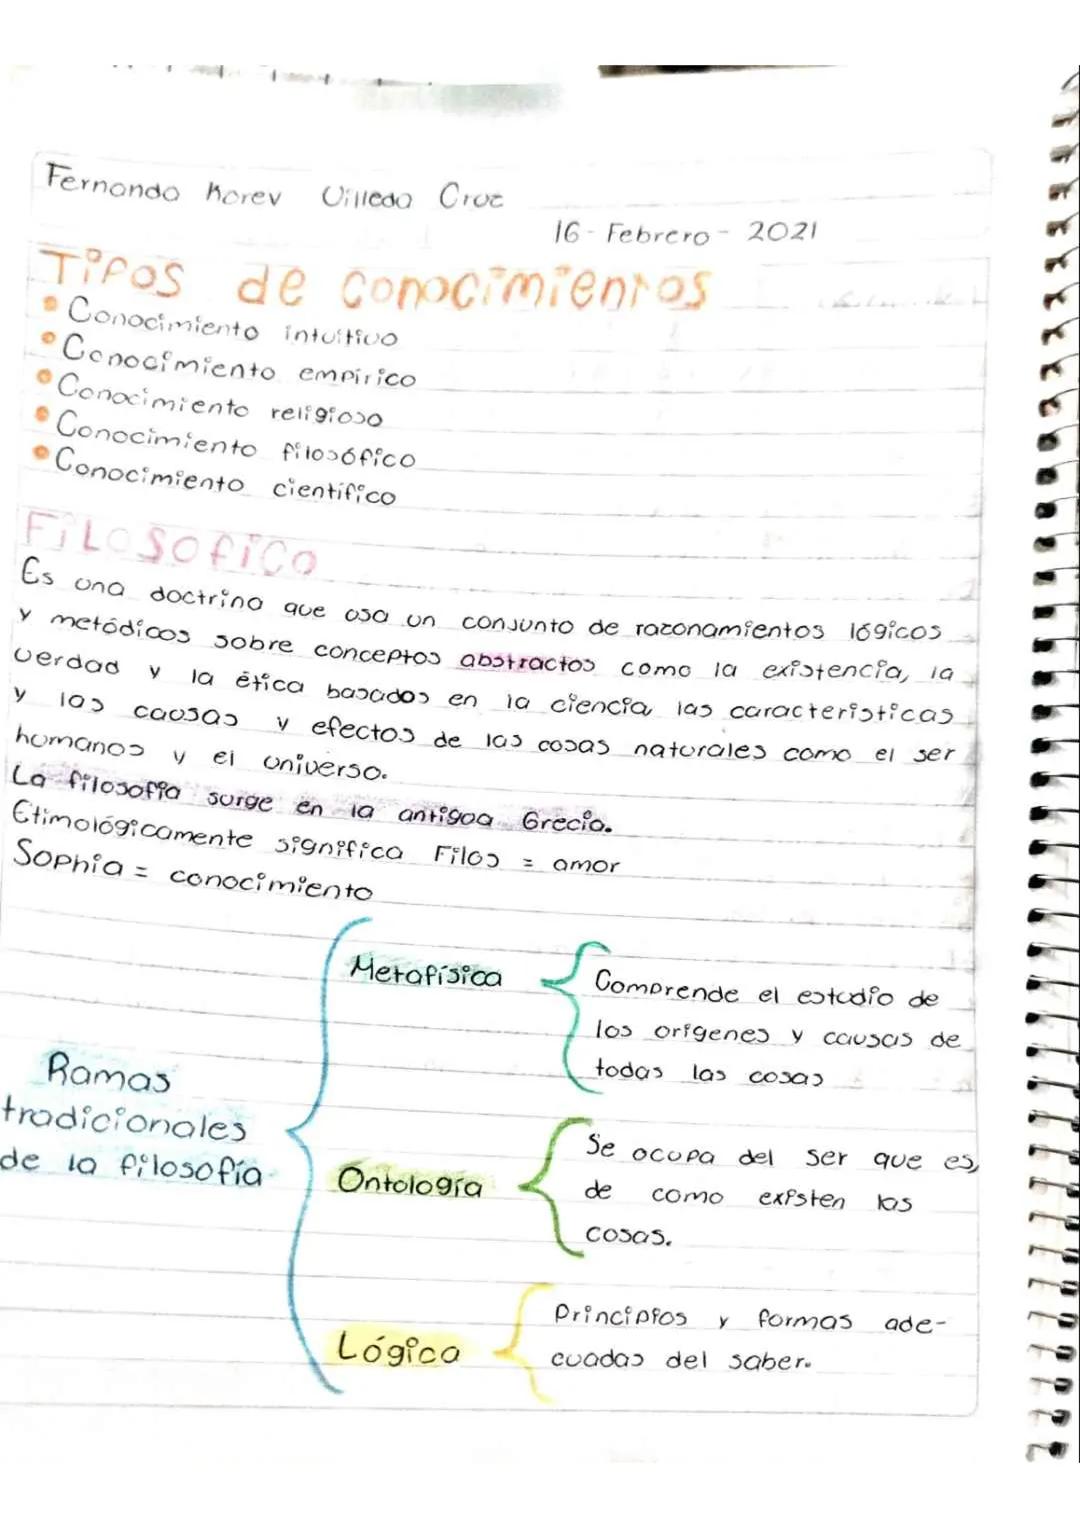 Fernanda Korev Villeda Cruz
16 - Febrero - 2021
Tipos de conocimientos
• Conocimiento intuitivo
• Conocimiento empírico
• Conocimiento religioso
• Conocimiento filosófico
• Conocimiento científico
Filosofico
Es una doctrina que usa un conjunto de razonamientos lógicos
y metódicos sobre conceptos abstractos como la existencia, la
verdad y la ética basados en la ciencia, las caracteristicas
y las causas y efectos de las cosas naturales como el ser
humanos y el universo.
La filosofía surge en la antigua Grecia.
Etimológicamente significa Filos = amor
Sophia = conocimiento
Metafísica
Comprende el estudio de
los orígenes y causas de
todas las cosas
Ramas
tradicionales
de la filosofía
Ontología
Se ocupa del ser que es,
de como existen las
cosas.
Lógica
Principios y formas ade-
cuadas del saber.